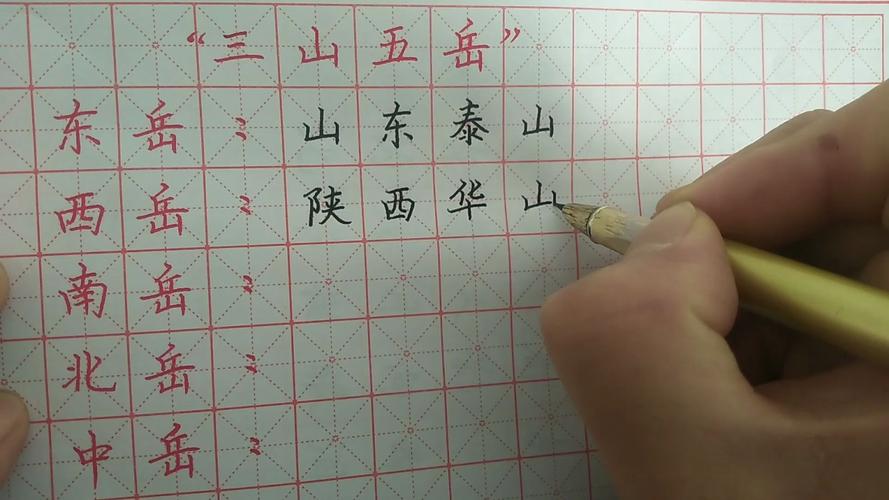 “三山五岳”
东岳：山东泰山
西岳：陕西华山
南岳：
北岳：
中岳：